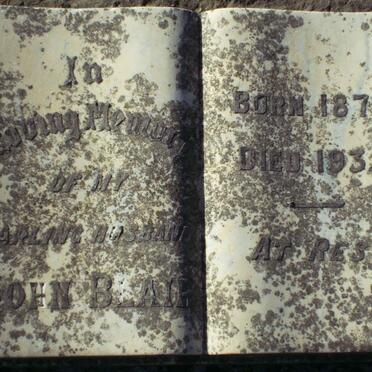 In
Loving Memory
OF MY
DARLING HUSBAND
JOHN BLAIR
BORN 187
DIED 193
AT REST